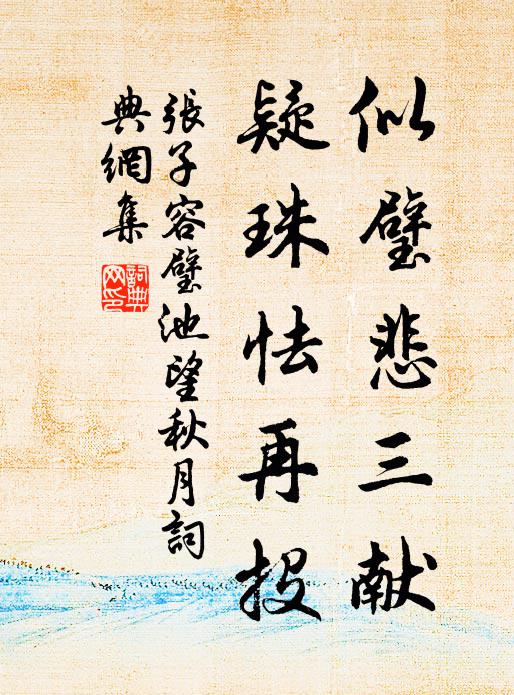 似璧悲三献
疑珠怯再投
張子容璧池望秋月詞
典網集
詞典
网印